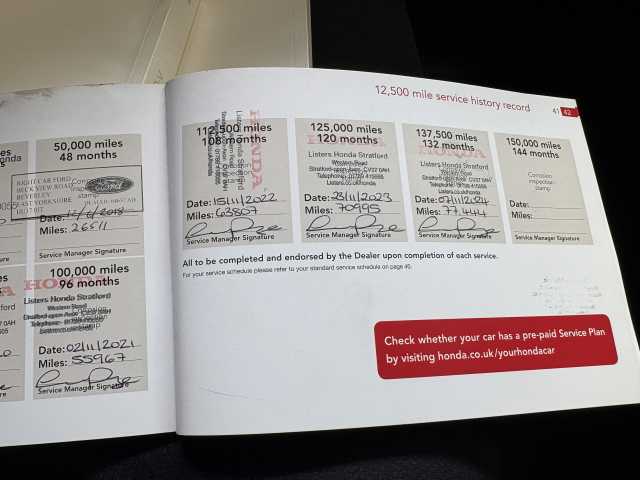 12,500 mile service history record
41 42
50,000 miles
48 months
RIGHT CAR FORD
BECK VIEW ROAD
BEVERLEY
EAST YORKSHIRE
Ford
Date: 12/6/2018
Miles: 26511
Service Manager Signature
100,000 miles
96 months
HONDA
Listers Honda Stratford
Western Road
Date: 02/11/2021
Miles: 55967
Service Manager Signature
112,500 miles
108 months
HONDA
Listers Honda Stratford
Date: 15/11/2022
Miles: 63807
Service Manager Signature
125,000 miles
120 months
Listers Honda Stratford
Western Road
Stratford-upon-Avon CV37 0AH
Telephone: 01789 415555
Listers.co.uk/honda
Date: 23/11/2023
Miles: 70995
Service Manager Signature
137,500 miles
132 months
HONDA
Listers Honda Stratford
Western Road
Stratford-upon-Avon CV37 0AH
Telephone: 01789 415555
Listers.co.uk/honda
Date: 07/11/2024
Miles: 77444
Service Manager Signature
150,000 miles
144 months
Corrosion
inspection
stamp
Date:
Miles:
Service Manager Signature
All to be completed and endorsed by the Dealer upon completion of each service.
For your service schedule please refer to your standard service schedule on page 40.
Check whether your car has a pre-paid Service Plan
by visiting honda.co.uk/yourhondacar